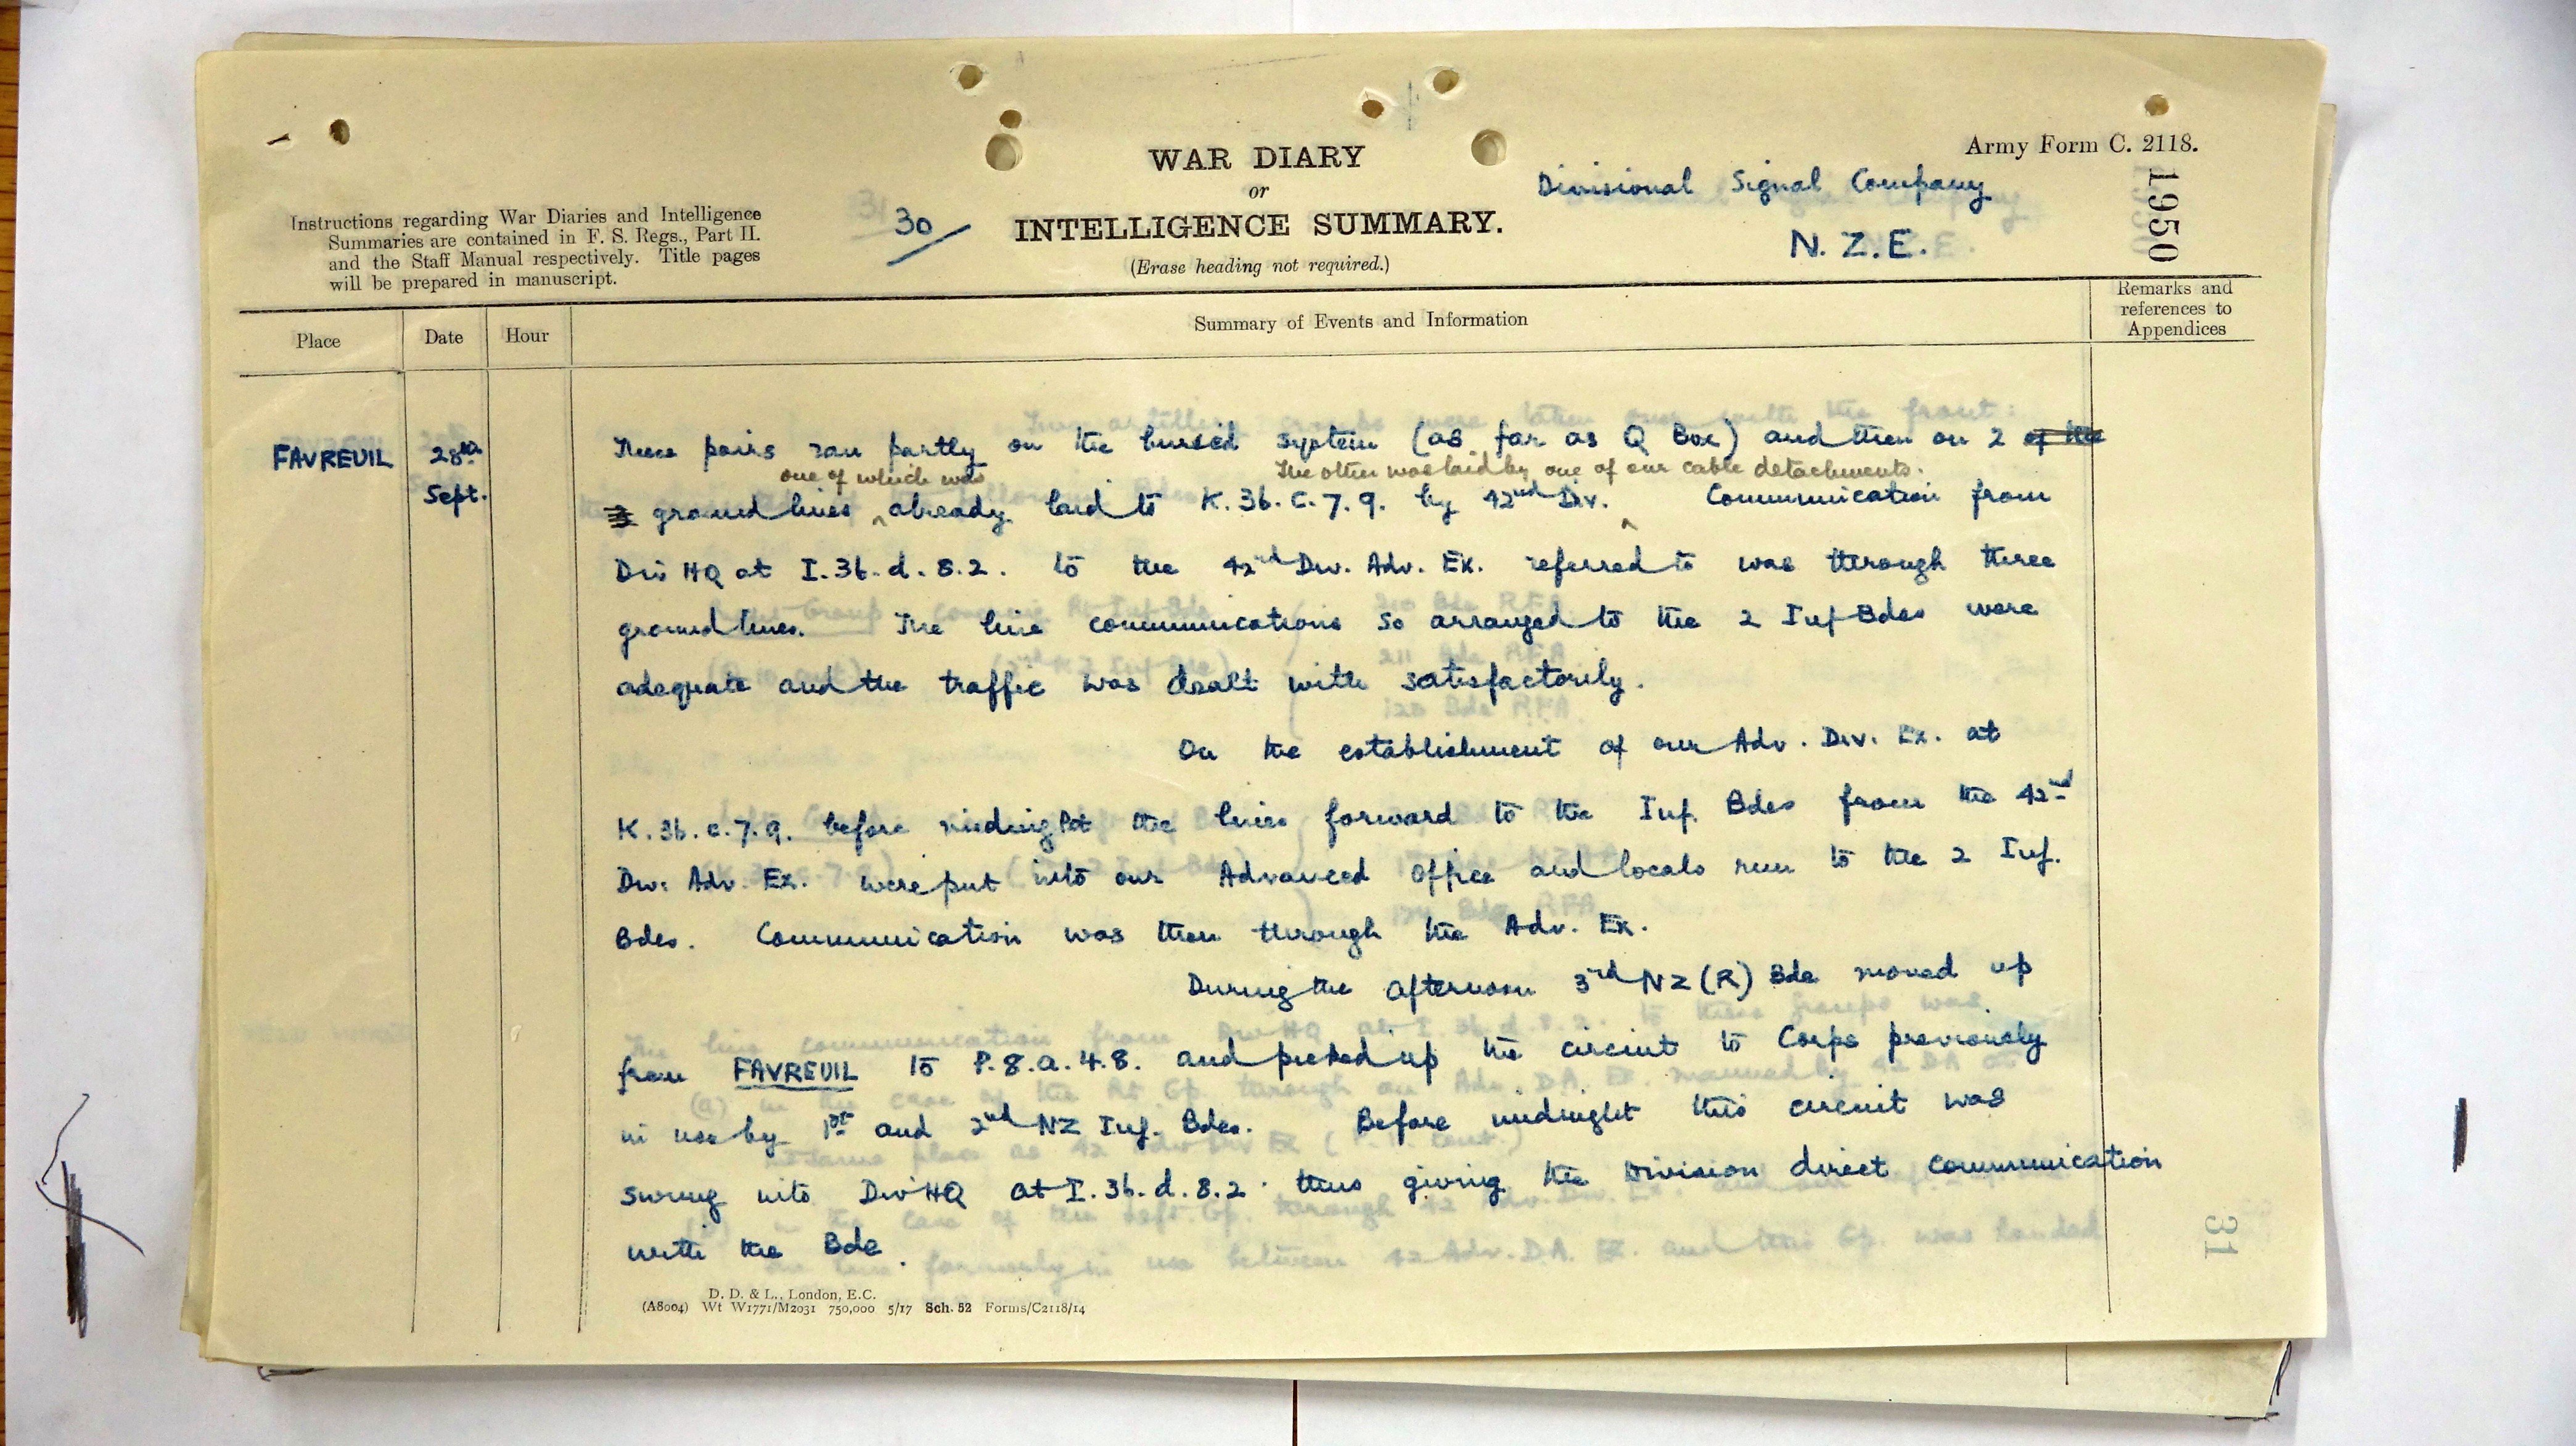 Army Form C. 2118.
WAR DIARY
or
INTELLIGENCE SUMMARY.
(Erase heading not required.)
Instructions regarding War Diaries and Intelligence
Summaries are contained in F. S. Regs., Part II.
and the Staff Manual respectively. Title pages
will be prepared in manuscript.
30/
Divisional Signal Company
N. Z. E.
1950
Place
Date
Hour
Summary of Events and Information
Remarks and
references to
Appendices
FAVREUIL
28th
Sept.
These pairs ran partly on the buried system (as far as Q Box) and then on 2 of the
one of which was
The other was laid by one of our cable detachments.
ground lines already laid to K.36.c.7.9. by 42nd Div. Communication from
Div HQ at I.36.d.8.2. to the 42nd Div. Adv. Ex. referred to was through three
ground lines. The line communications so arranged to the 2 Inf Bdes were
adequate and the traffic was dealt with satisfactorily.
On the establishment of our Adv. Div. Ex. at
K.36.c.7.9. before midnight the lines forward to the Inf. Bdes from the 42nd
Div. Adv. Ex. were put into our Advanced office and locals run to the 2 Inf.
Bdes. Communication was then through the Adv. Ex.
During the afternoon 3rd NZ (R) Bde moved up
from FAVREUIL to P.8.a.4.8. and picked up the circuit to Corps previously
in use by 1st and 2nd NZ Inf. Bdes. Before midnight this circuit was
swung into Div HQ at I.36.d.8.2. thus giving the Division direct communication
with the Bde.
31
D. D. & L., London, E.C.
(A8004) Wt W1771/M2031 750,000 5/17 Sch. 52 Forms/C2118/14